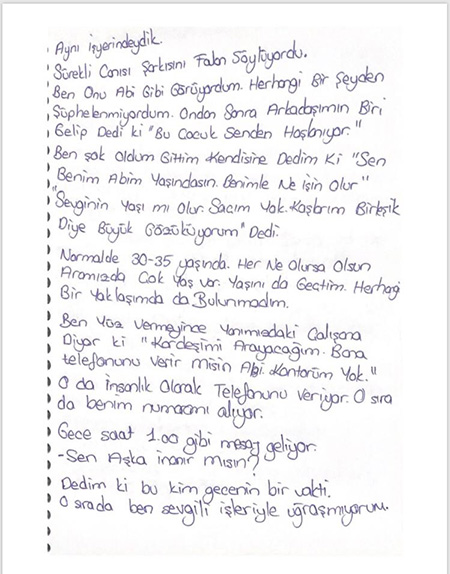 Aynı işyerindeydik.
Sürekli Canısı Şarkısını Falan Söylüyordu.
Ben Onu Abi Gibi Görüyordum. Herhangi Bir Şeyden
Şüphelenmiyordum. Ondan Sonra Arkadaşımın Biri
Gelip Dedi ki "Bu Çocuk Senden Hoşlanıyor."
Ben şok oldum Gittim Kendisine Dedim Ki "Sen
Benim Abim Yaşındasın. Benimle Ne işin Olur"
"Sevginin Yaşı mı Olur. Saçım Yok. Kaşlarım Birleşik
Diye Büyük Gözüküyorum" Dedi.
Normalde 30-35 yaşında. Her Ne Olursa Olsun
Aramızda Çok Yaş var. Yaşını da Geçtim. Herhagi
Bir Yaklaşımda da Bulunmadım.
Ben Yüz Vermeyince Yanımızdaki Çalışana
Diyor ki "Kardeşimi Arayacağım. Bana
telefonunu Verir Misin Abi. Kontörüm Yok."
O da insanlık Olarak Telefonunu veriyor. O sıra
da benim numaramı alıyor.
Gece saat 1.00 gibi mesaj geliyor.
-Sen Aşka inanır mısın?
Dedim ki bu kim gecenin bir vakti.
O sırada ben sevgili işleriyle uğraşmıyorum.